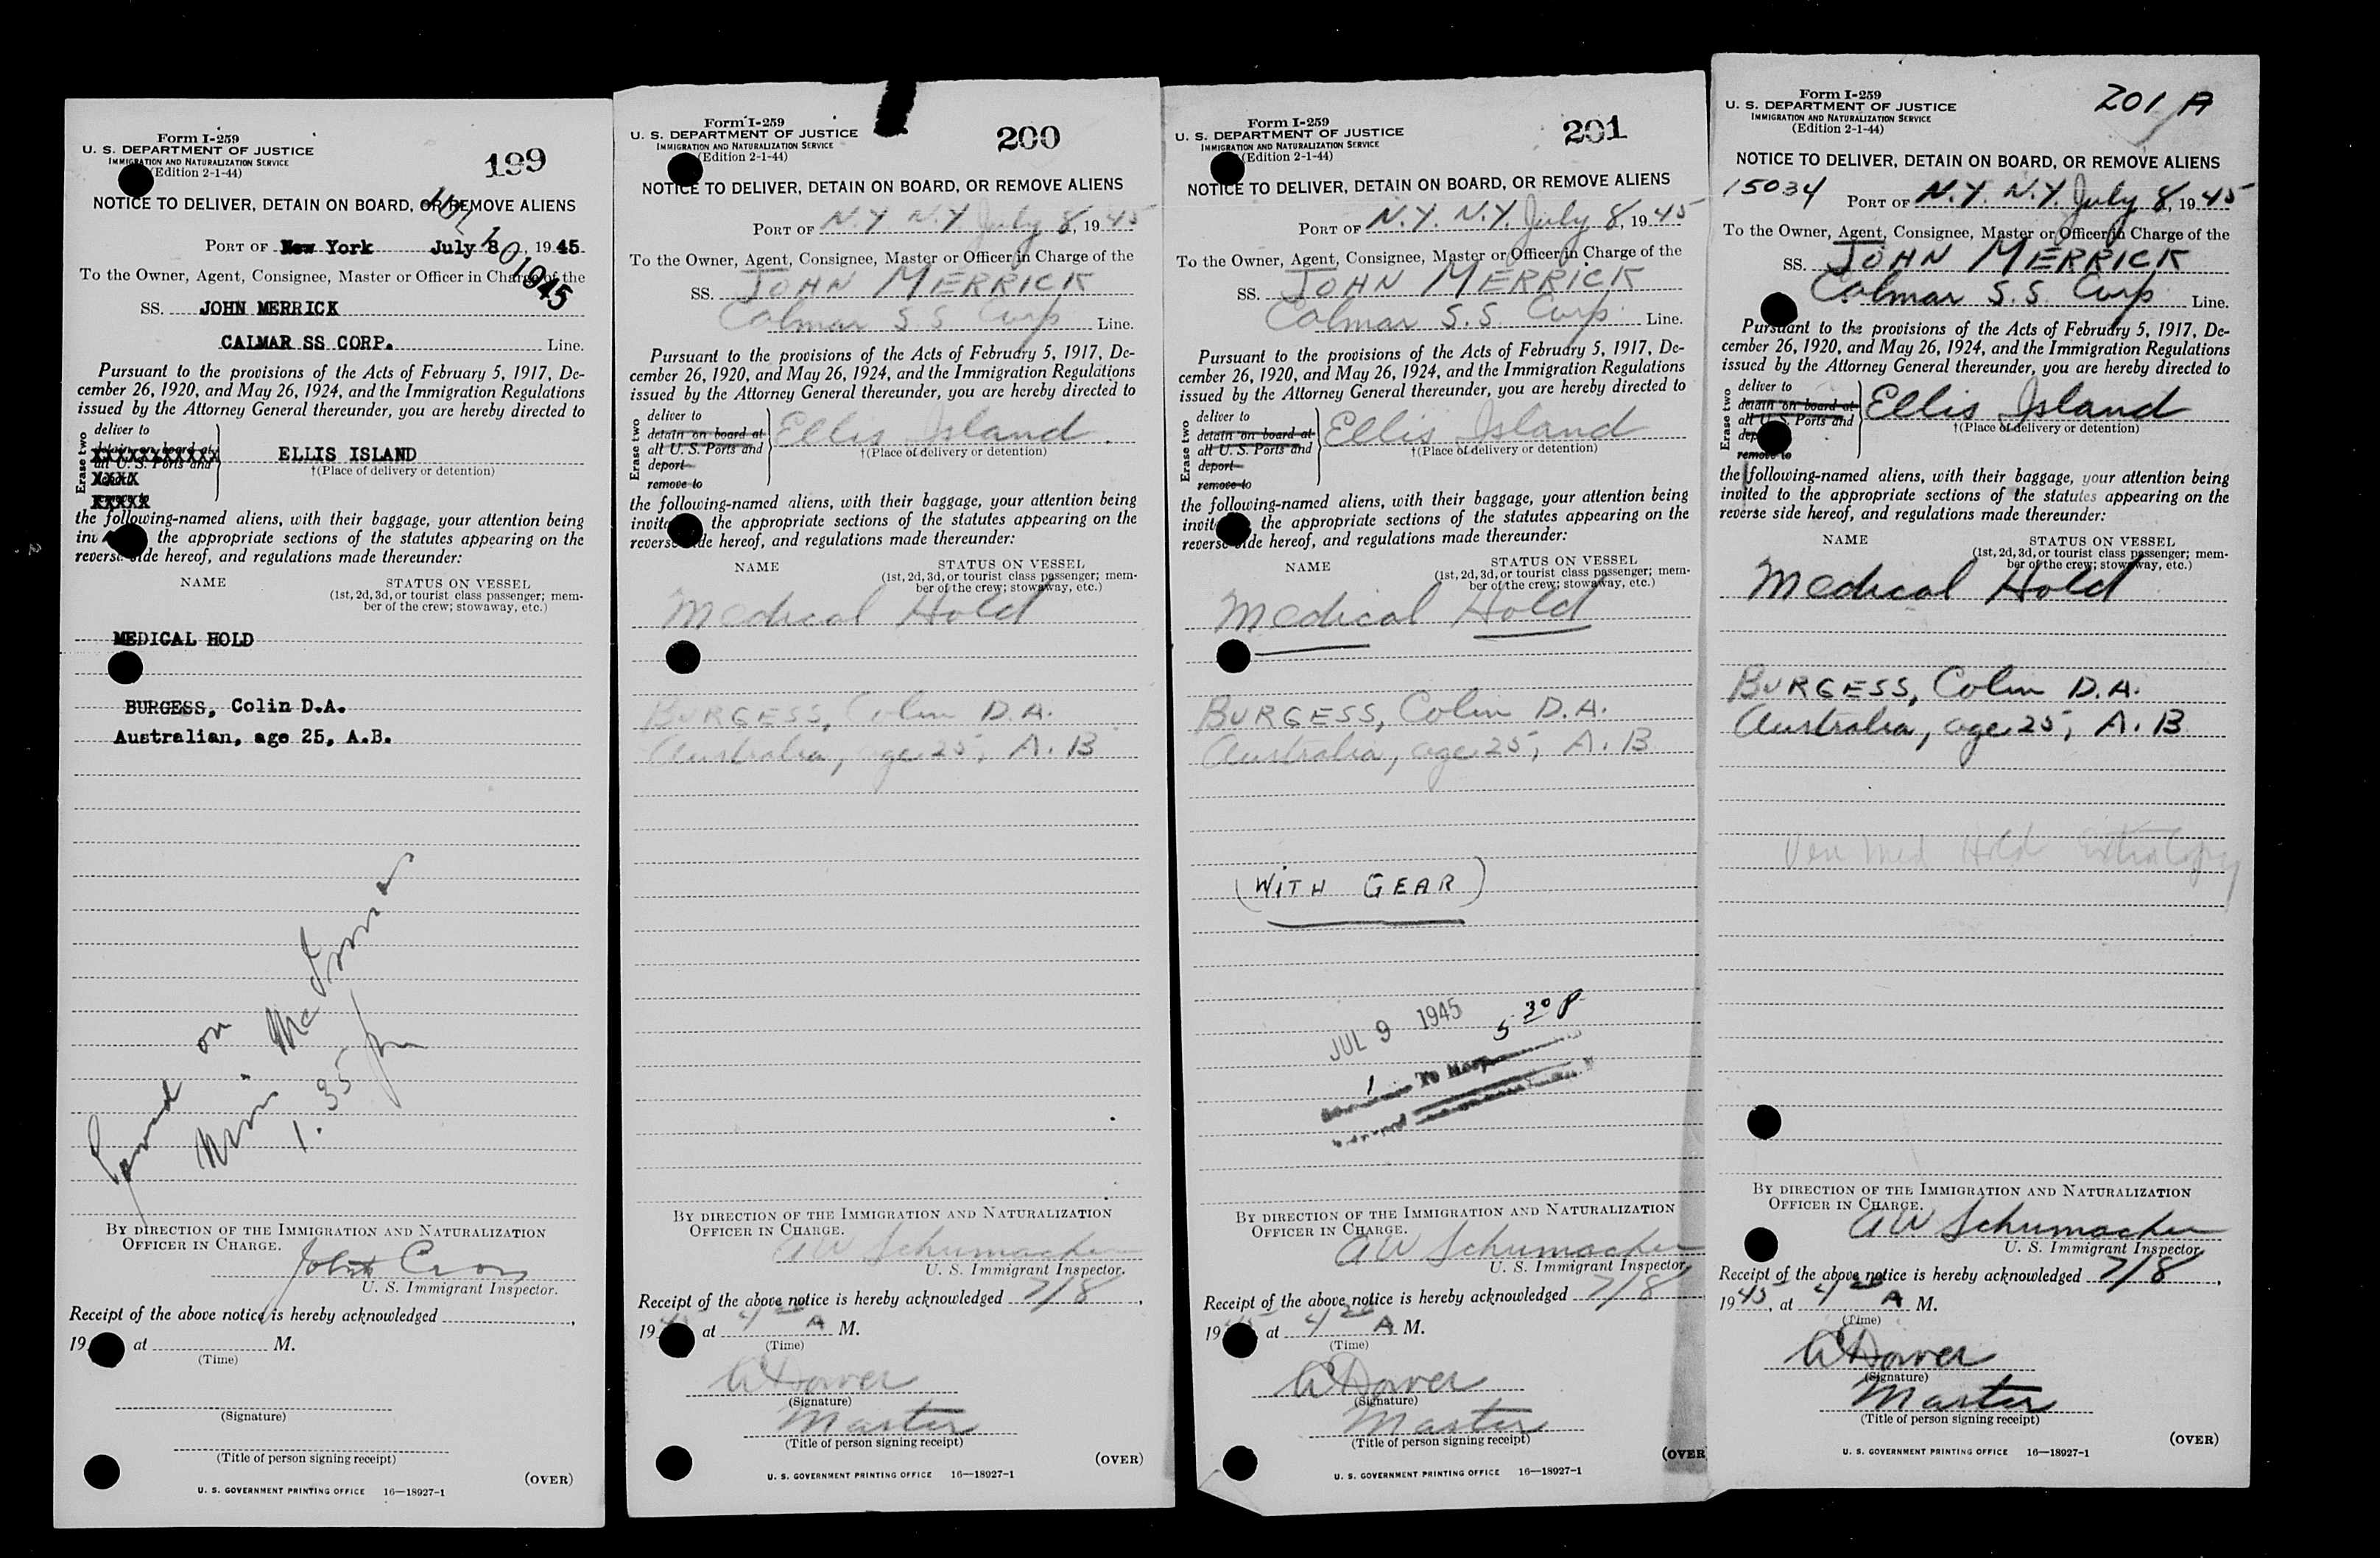 Form I-259
U. S. DEPARTMENT OF JUSTICE
IMMIGRATION AND NATURALIZATION SERVICE
(Edition 2-1-44)
199
NOTICE TO DELIVER, DETAIN ON BOARD, OR REMOVE ALIENS
JUL 10 1945
PORT OF New York July 8, 1945
To the Owner, Agent, Consignee, Master or Officer in Charge of the
SS. JOHN MERRICK
CALMAR SS CORP. Line.
Pursuant to the provisions of the Acts of February 5, 1917, De-
cember 26, 1920, and May 26, 1924, and the Immigration Regulations
issued by the Attorney General thereunder, you are hereby directed to
Erase two
deliver to
detain on board at
all U. S. Ports and
XXXX
XXXXX
ELLIS ISLAND
†(Place of delivery or detention)
the following-named aliens, with their baggage, your attention being
the appropriate sections of the statutes appearing on the
reverse side hereof, and regulations made thereunder:
NAME STATUS ON VESSEL
(1st, 2d, 3d, or tourist class passenger; mem-
ber of the crew; stowaway, etc.)
MEDICAL HOLD
BURGESS, Colin D.A.
Australian, age 25, A.B.
on
1.35 pm
BY DIRECTION OF THE IMMIGRATION AND NATURALIZATION
OFFICER IN CHARGE.
U. S. Immigrant Inspector.
Receipt of the above notice is hereby acknowledged
19 at M.
(Time)
(Signature)
(Title of person signing receipt)
(OVER)
U. S. GOVERNMENT PRINTING OFFICE 16—18927-1
Form I-259
U. S. DEPARTMENT OF JUSTICE
IMMIGRATION AND NATURALIZATION SERVICE
(Edition 2-1-44)
200
NOTICE TO DELIVER, DETAIN ON BOARD, OR REMOVE ALIENS
PORT OF N.Y. N.Y. July 8, 1945
To the Owner, Agent, Consignee, Master or Officer in Charge of the
SS. JOHN MERRICK
Calmar S.S Corp Line.
Pursuant to the provisions of the Acts of February 5, 1917, De-
cember 26, 1920, and May 26, 1924, and the Immigration Regulations
issued by the Attorney General thereunder, you are hereby directed to
Erase two
deliver to
detain on board at
all U. S. Ports and
deport
remove to
Ellis Island.
†(Place of delivery or detention)
the following-named aliens, with their baggage, your attention being
the appropriate sections of the statutes appearing on the
reverse side hereof, and regulations made thereunder:
NAME STATUS ON VESSEL
(1st, 2d, 3d, or tourist class passenger; mem-
ber of the crew; stowaway, etc.)
Medical Hold
BURGESS, Colin D.A.
Australia, age 25, A.B
BY DIRECTION OF THE IMMIGRATION AND NATURALIZATION
OFFICER IN CHARGE.
AW Schumacher
U. S. Immigrant Inspector.
Receipt of the above notice is hereby acknowledged 7/8,
1945 at 4 20 A M.
(Time)
(Signature)
Master
(Title of person signing receipt)
(OVER)
U. S. GOVERNMENT PRINTING OFFICE 16—18927-1
Form I-259
U. S. DEPARTMENT OF JUSTICE
IMMIGRATION AND NATURALIZATION SERVICE
(Edition 2-1-44)
201
NOTICE TO DELIVER, DETAIN ON BOARD, OR REMOVE ALIENS
PORT OF N.Y. N.Y. July 8, 1945
To the Owner, Agent, Consignee, Master or Officer in Charge of the
SS. JOHN MERRICK
Calmar S.S. Corp. Line.
Pursuant to the provisions of the Acts of February 5, 1917, De-
cember 26, 1920, and May 26, 1924, and the Immigration Regulations
issued by the Attorney General thereunder, you are hereby directed to
Erase two
deliver to
detain on board at
all U. S. Ports and
deport
remove to
Ellis Island
†(Place of delivery or detention)
the following-named aliens, with their baggage, your attention being
the appropriate sections of the statutes appearing on the
reverse side hereof, and regulations made thereunder:
NAME STATUS ON VESSEL
(1st, 2d, 3d, or tourist class passenger; mem-
ber of the crew; stowaway, etc.)
Medical Hold
BURGESS, Colin D.A.
Australia, age 25, A.B
(WITH GEAR)
JUL 9 1945 5 30 P
1 To Hosp.
BY DIRECTION OF THE IMMIGRATION AND NATURALIZATION
OFFICER IN CHARGE.
AW Schumacher
U. S. Immigrant Inspector.
Receipt of the above notice is hereby acknowledged 7/8
1945, at 4 20 A M.
(Time)
(Signature)
Master
(Title of person signing receipt)
(OVER
U. S. GOVERNMENT PRINTING OFFICE 16—18927-1
Form I-259
U. S. DEPARTMENT OF JUSTICE
IMMIGRATION AND NATURALIZATION SERVICE
(Edition 2-1-44)
201 A
NOTICE TO DELIVER, DETAIN ON BOARD, OR REMOVE ALIENS
15034 PORT OF N.Y. N.Y. July 8, 1945
To the Owner, Agent, Consignee, Master or Officer in Charge of the
SS. JOHN MERRICK
Calmar S.S. Corp Line.
Pursuant to the provisions of the Acts of February 5, 1917, De-
cember 26, 1920, and May 26, 1924, and the Immigration Regulations
issued by the Attorney General thereunder, you are hereby directed to
Erase two
deliver to
detain on board at
all U. S. Ports and
remove to
Ellis Island
†(Place of delivery or detention)
the following-named aliens, with their baggage, your attention being
invited to the appropriate sections of the statutes appearing on the
reverse side hereof, and regulations made thereunder:
NAME STATUS ON VESSEL
(1st, 2d, 3d, or tourist class passenger; mem-
ber of the crew; stowaway, etc.)
Medical Hold
BURGESS, Colin D.A.
Australia, age 25, A.B
Med Hold Extra Copy
BY DIRECTION OF THE IMMIGRATION AND NATURALIZATION
OFFICER IN CHARGE.
AW Schumacher
U. S. Immigrant Inspector
Receipt of the above notice is hereby acknowledged 7/8,
1945, at 4 20 A M.
(Time)
(Signature)
Master
(Title of person signing receipt)
(OVER)
U. S. GOVERNMENT PRINTING OFFICE 16—18927-1